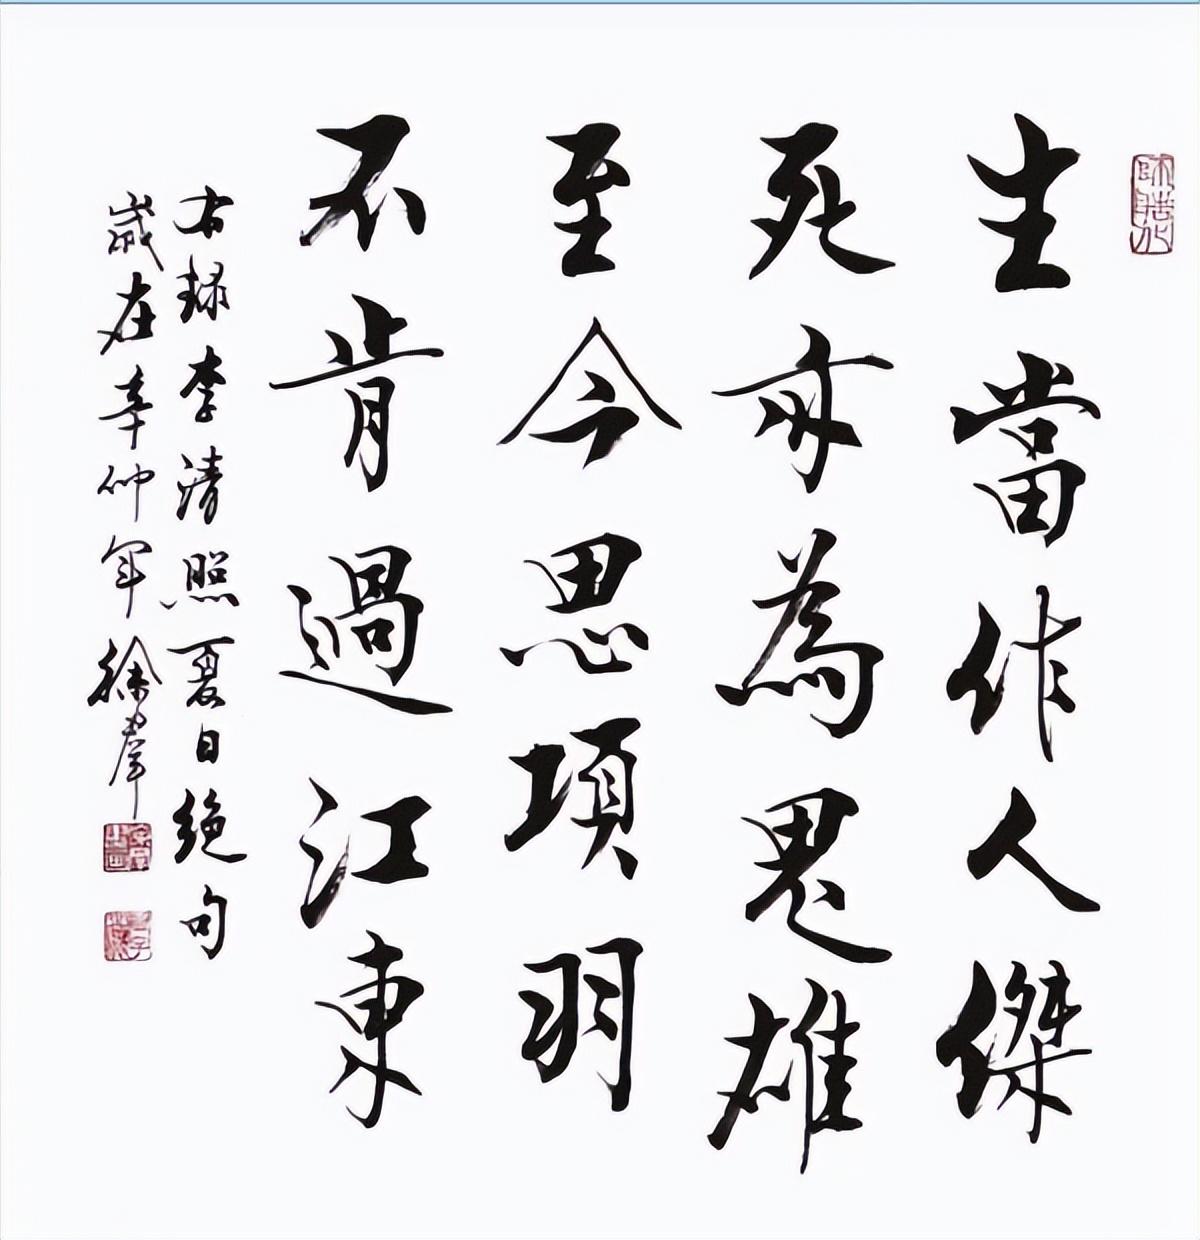 生當作人傑
死亦為鬼雄
至今思項羽
不肯過江東
右録李清照夏日絶句
歲在辛仲年徐